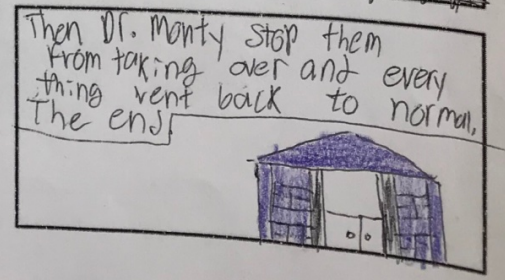 Then Dr. Monty stop them
from taking over and every
thing vent back to normal.
The end